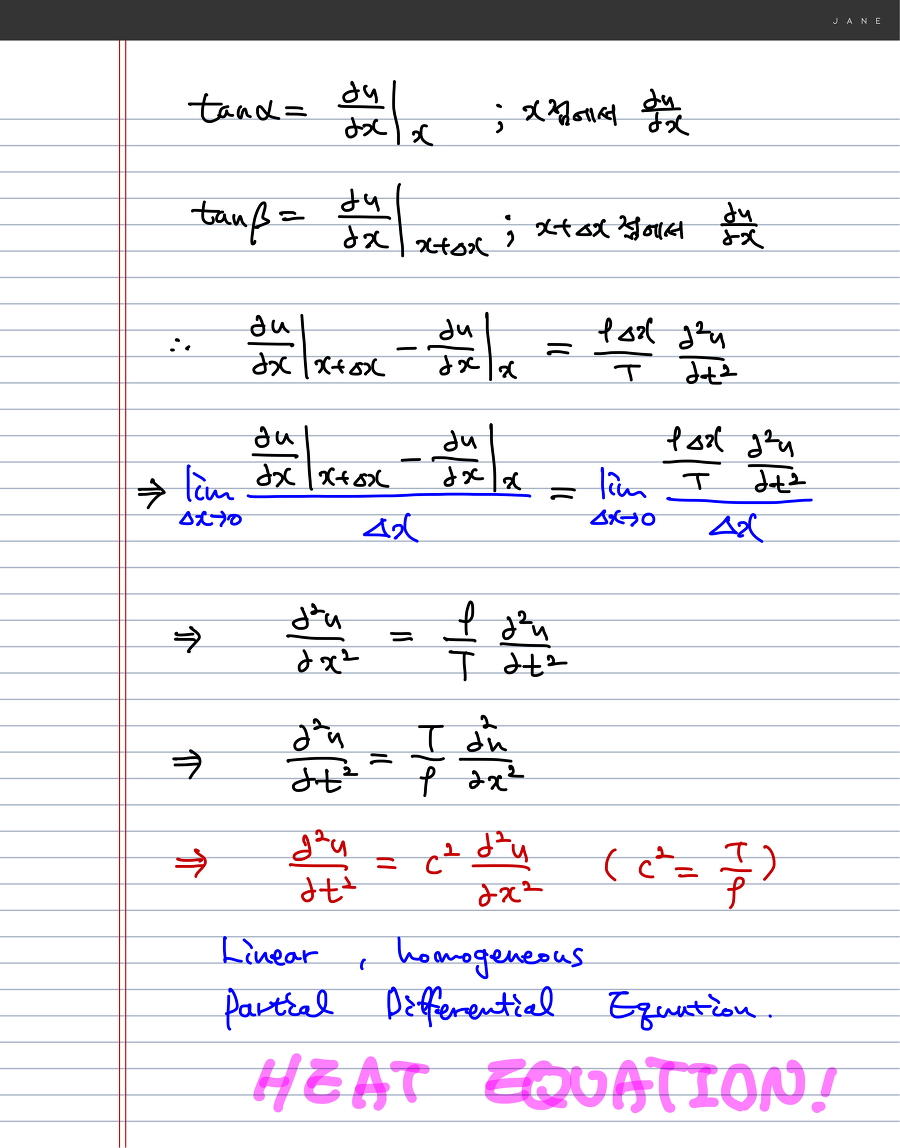 JANE
tanα = ∂u/∂x |x ; x점에서 ∂u/∂x
tanβ = ∂u/∂x |x+Δx ; x+Δx 점에서 ∂u/∂x
∴ ∂u/∂x |x+Δx − ∂u/∂x |x = ρΔx/T ∂²u/∂t²
⇒ lim Δx→0 (∂u/∂x |x+Δx − ∂u/∂x |x)/Δx = lim Δx→0 (ρΔx/T ∂²u/∂t²)/Δx
⇒ ∂²u/∂x² = ρ/T ∂²u/∂t²
⇒ ∂²u/∂t² = T/ρ ∂²u/∂x²
⇒ ∂²u/∂t² = c² ∂²u/∂x² ( c² = T/ρ )
Linear , homogeneous
Partial Differential Equation.
HEAT EQUATION!